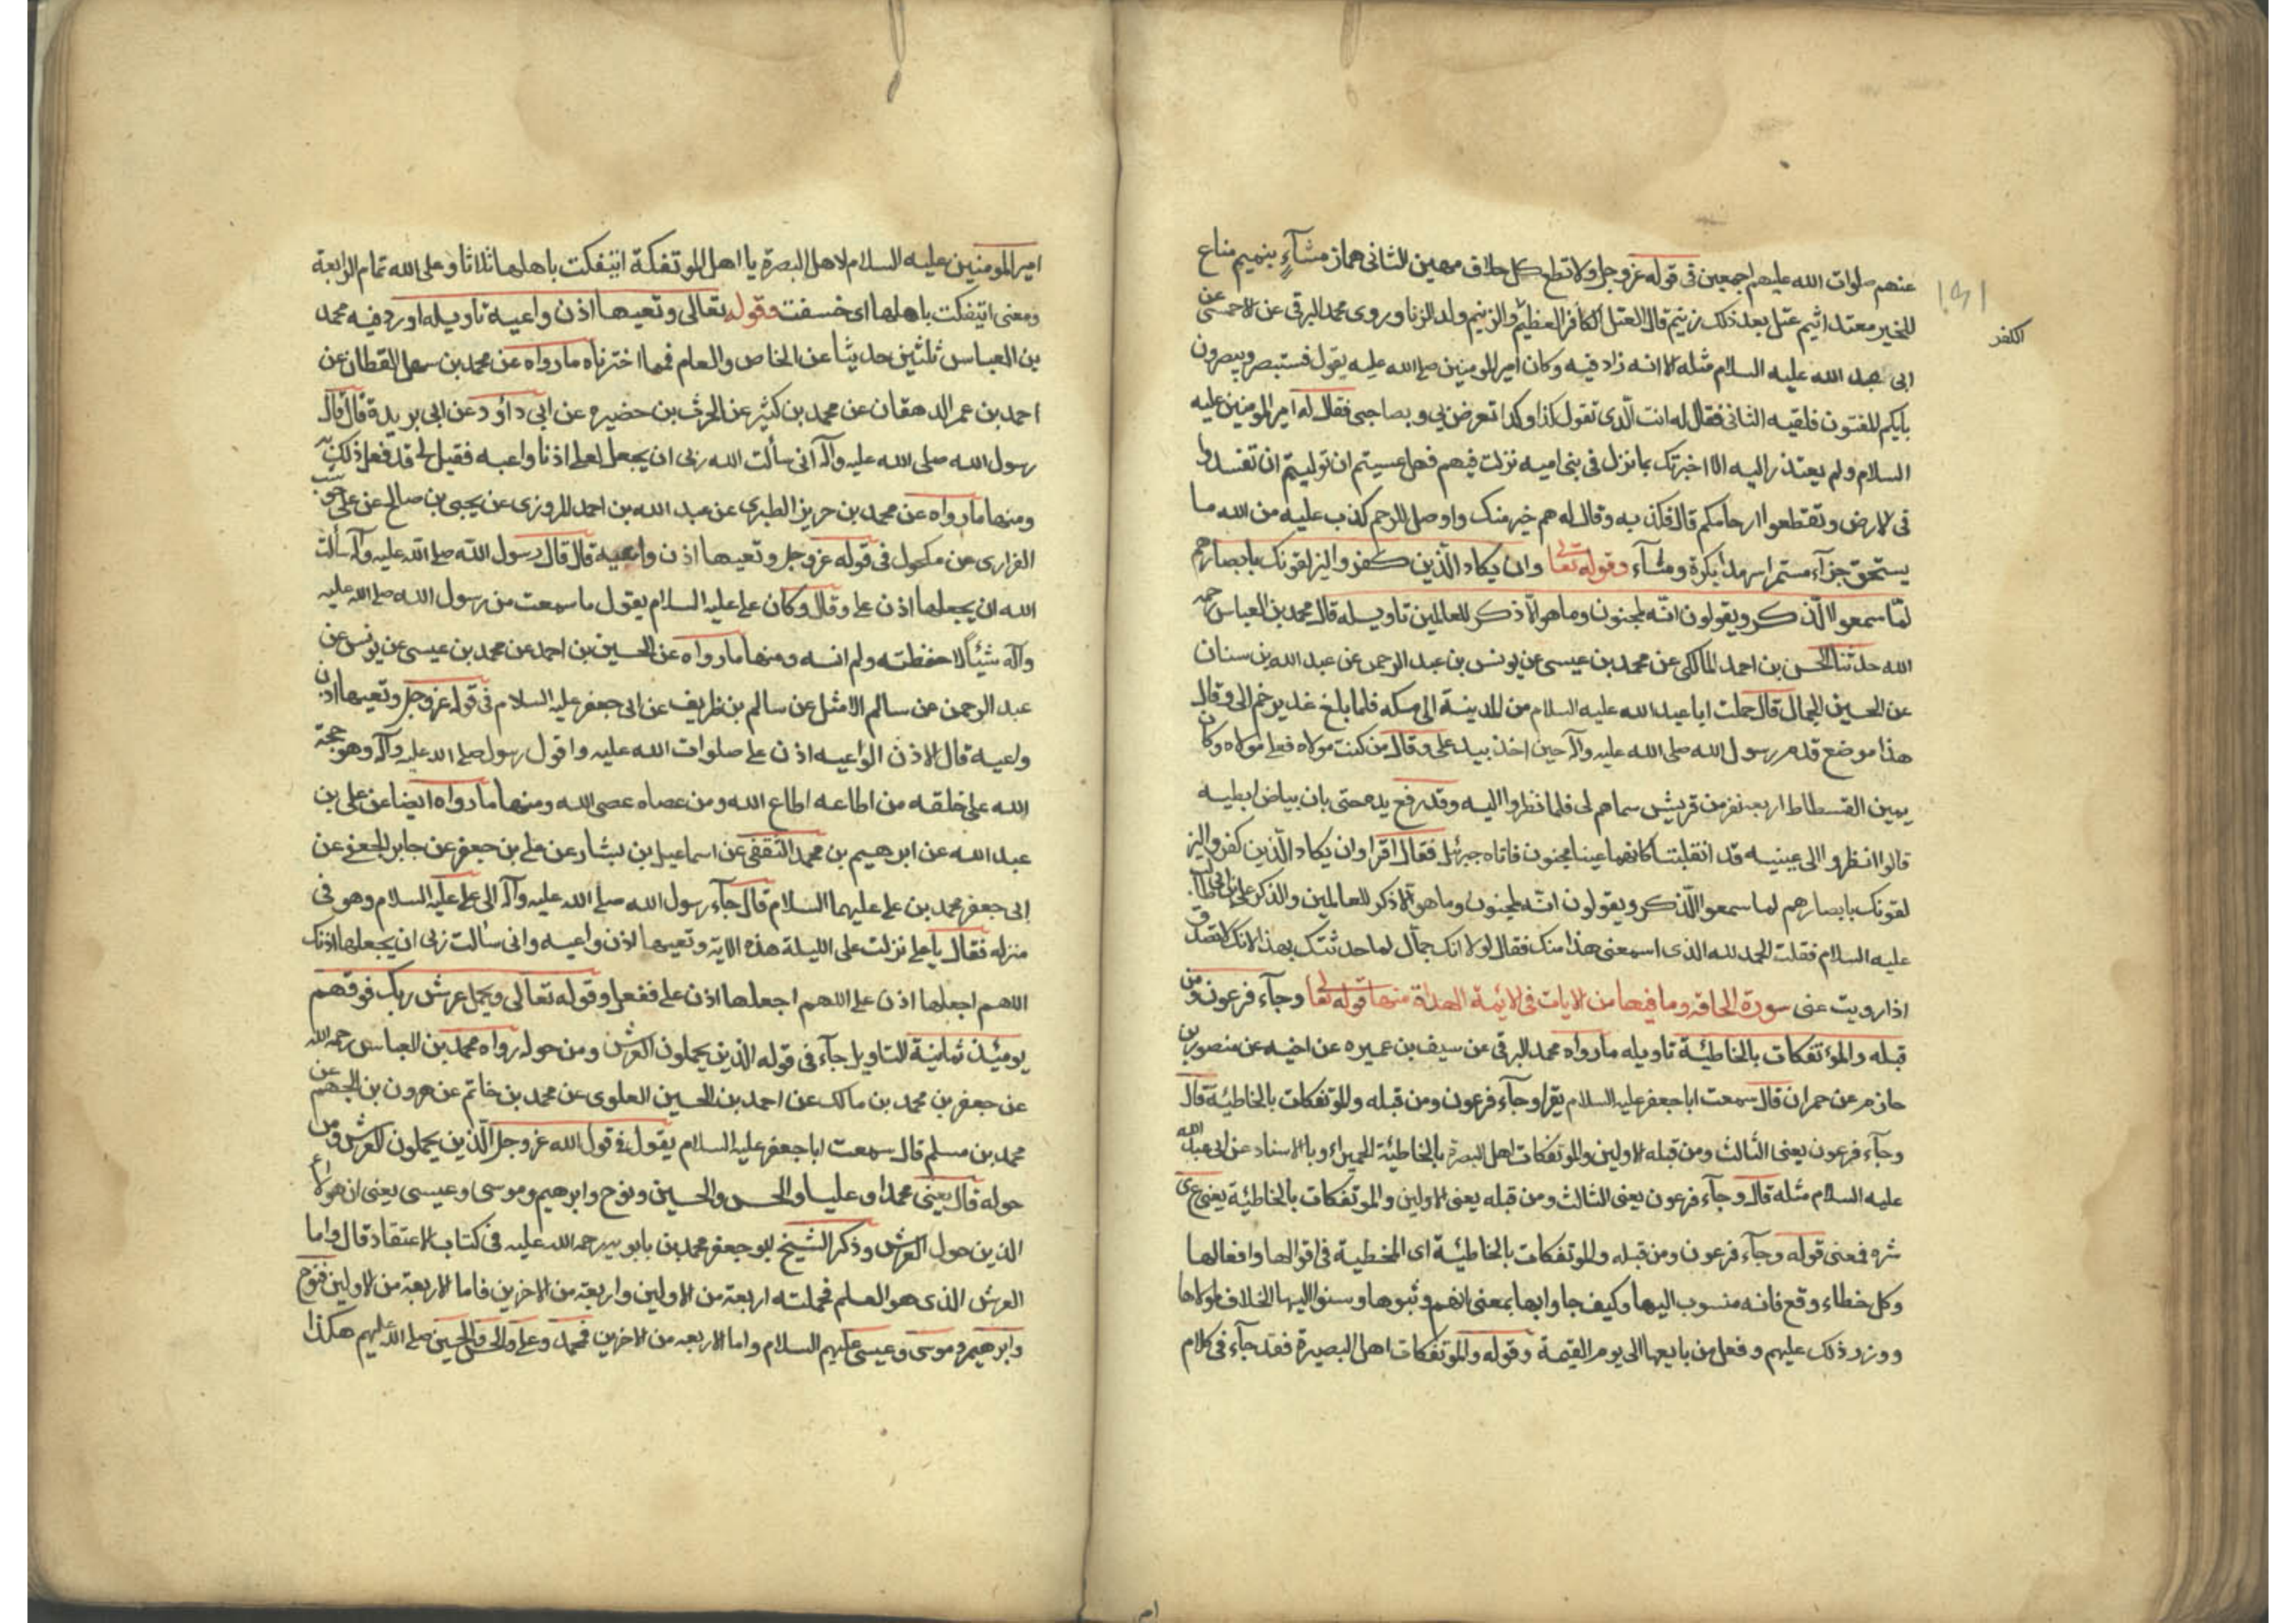 عنهم صلوات الله عليهم اجمعين فى قوله عز وجل ولا تطع كل حلاف مهين الثانى هماز مشآء بنميم مناع
للخير معتد اثيم عتل بعد ذلك زنيم قال العتل الكافر العظيم والزنيم ولد الزنا وروى محمد البرقى عن الاحمسى عن
الكفر
ابى عبد الله عليه السلام مثله الا انه زاد فيه وكان امير المومنين صلى الله عليه يقول فستبصر ويبصرون
بايكم المفتون فلقيه الثانى فقال له انت الذى تقول كذا وكذا تعرض بى وبصاحبى فقال له امير المومنين عليه
السلام ولم يعتذر اليه الا اخبرتك بما نزل فى بنى اميه نزلت فيهم فهل عسيتم ان توليتم ان تفسدوا
فى الارض وتقطعوا ارحامكم قال فكذبه وقال له هم خير منك واوصل للرحم كذب عليه من الله ما
يستحق جزآء مستمرا سرمدا بكرة ومسآء وقوله تعا وان يكاد الذين كفروا ليزلقونك بابصارهم
لما سمعوا الذكر ويقولون انه لمجنون وما هو الا ذكر للعالمين تاويله قال محمد بن العباس رحمه
الله حدثنا الحسن بن احمد المالكى عن محمد بن عيسى عن يونس بن عبد الرحمن عن عبد الله بن سنان
عن الحسين الجمال قال حملت ابا عبد الله عليه السلام من المدينة الى مكه فلما بلغ غدير خم الى وقال
هذا موضع قدم رسول الله صلى الله عليه وآله حين اخذ بيد على وقال من كنت مولاه فعلى مولاه وكان
يمين القسطاط اربعه نفر من قريش سماهم لى فلما نظروا اليه وقد رفع يده حتى بان بياض ابطيه
قالوا انظروا الى عينيه قد انقلبتا كانهما عينا مجنون فاتاه جبرئل فقال اقرا وان يكاد الذين كفروا ليز
لقونك بابصارهم لما سمعوا الذكر ويقولون انه لمجنون وما هو الا ذكر للعالمين والذكر على بن ابى طالب
عليه السلام فقلت الحمد لله الذى اسمعنى هذا منك فقال لولا انك جمآل لما حدثتك بهذا لانك لا تصدق
اذا رويت عنى سورة الحاقه وما فيها من الايات فى الائمة الهداة منها قوله تعا وجآء فرعون ومن
قبله والمؤتفكات بالخاطئة تاويله مارواه محمد البرقى عن سيف بن عميره عن اخيه عن منصور بن
حازم عن حمران قال سمعت ابا جعفر عليه السلام يقرا وجآء فرعون ومن قبله والموتفكات بالخاطئة قال
وجآء فرعون يعنى الثالث ومن قبله الاولين والموتفكات اهل البصرة بالخاطئة الحميراء وبالاسناد عن ابى عبد الله
عليه السلام مثله قال وجآء فرعون يعنى الثالث ومن قبله يعنى الاولين والموتفكات بالخاطئة يعنى عى
شره فمعنى قوله وجآء فرعون ومن قبله والموتفكات بالخاطئة اى المخطية فى اقوالها وافعالها
وكل خطاء وقع فانه منسوب اليها وكيف جاوا بها بمعنى انهم وثبوها وسنوا اليها الخلاف لمولاها
ووزر ذلك عليهم وفعل من بايعها الى يوم القيمة وقوله والموتفكات اهل البصيرة فقد جآء فى كلام
ام
امير المومنين عليه السلام لاهل البصرة يا اهل الموتفكة ايتفكت باهلها ثلاثا وعلى الله تمام الرابعة
ومعنى ايتفكت باهلها اى خسفت وقوله تعالى وتعيها اذن واعية تاويله اورد فيه محمد
بن العباس ثلثين حديثا عن الخاص والعام فمما اخترناه مارواه عن محمد بن سهل القطان عن
احمد بن عمر الدهقان عن محمد بن كثير عن الحرث بن حضيره عن ابى داود عن ابى بريدة قال قال
رسول الله صلى الله عليه وآله انى سألت الله ربى ان يجعل لعلى اذنا واعيه فقيل لى قد فعل ذلك به
ومنها مارواه عن محمد بن حرير الطبرى عن عبد الله بن احمد المروزى عن يحيى بن صالح عن على حوشب
الفزارى عن مكحول فى قوله عز وجل وتعيها اذن واعيه قال قال رسول الله صلى الله عليه وآله سألت
الله ان يجعلها اذن على وقال وكان على عليه السلام يقول ما سمعت من رسول الله صلى الله عليه
وآله شيئا الا حفظته ولم انسه ومنها مارواه عن الحسين بن احمد عن محمد بن عيسى عن يونس عن
عبد الرحمن عن سالم الامثل عن سالم بن ظريف عن ابى جعفر عليه السلام فى قوله عز وجل وتعيها اذن
واعية قال الاذن الواعيه اذن على صلوات الله عليه واقول رسول صلى الله عليه وآله وهو حجة
الله على خلقه من اطاعه اطاع الله ومن عصاه عصى الله ومنها مارواه ايضا عن على بن
عبد الله عن ابرهيم بن محمد الثقفى عن اسماعيل بن بشار عن على بن جعفر عن جابر الجعفى عن
ابى جعفر محمد بن على عليهما السلام قال جآء رسول الله صلى الله عليه وآله الى على عليه السلام وهو فى
منزله فقال يا على نزلت على الليلة هذه الاية وتعيها اذن واعيه وانى سألت ربى ان يجعلها اذنك
اللهم اجعلها اذن على اللهم اجعلها اذن على ففعل وقوله تعالى ويحمل عرش ربك فوقهم
يومئذ ثمانية التاويل جآء فى قوله الذين يحملون العرش ومن حوله رواه محمد بن العباس رحمه الله
عن جعفر بن محمد بن مالك عن احمد بن الحسين العلوى عن محمد بن خاتم عن هرون بن الجهم عن
محمد بن مسلم قال سمعت ابا جعفر عليه السلام يقول فى قول الله عز وجل الذين يحملون العرش ومن
حوله قال يعنى محمدا وعليا والحسن والحسين ونوح وابرهيم وموسى وعيسى يعنى ان هولاء
الذين حول العرش وذكر الشيخ ابو جعفر محمد بن بابويه رحمه الله عليه فى كتاب الاعتقاد قال واما
العرش الذى هو العلم فحملته اربعة من الاولين واربعة من الاخرين فاما الاربعة من الاولين فنوح
وابرهيم وموسى وعيسى عليهم السلام واما الاربعه من الاخرين فمحمد وعلى والحسن والحسين صلى الله عليهم هكذا